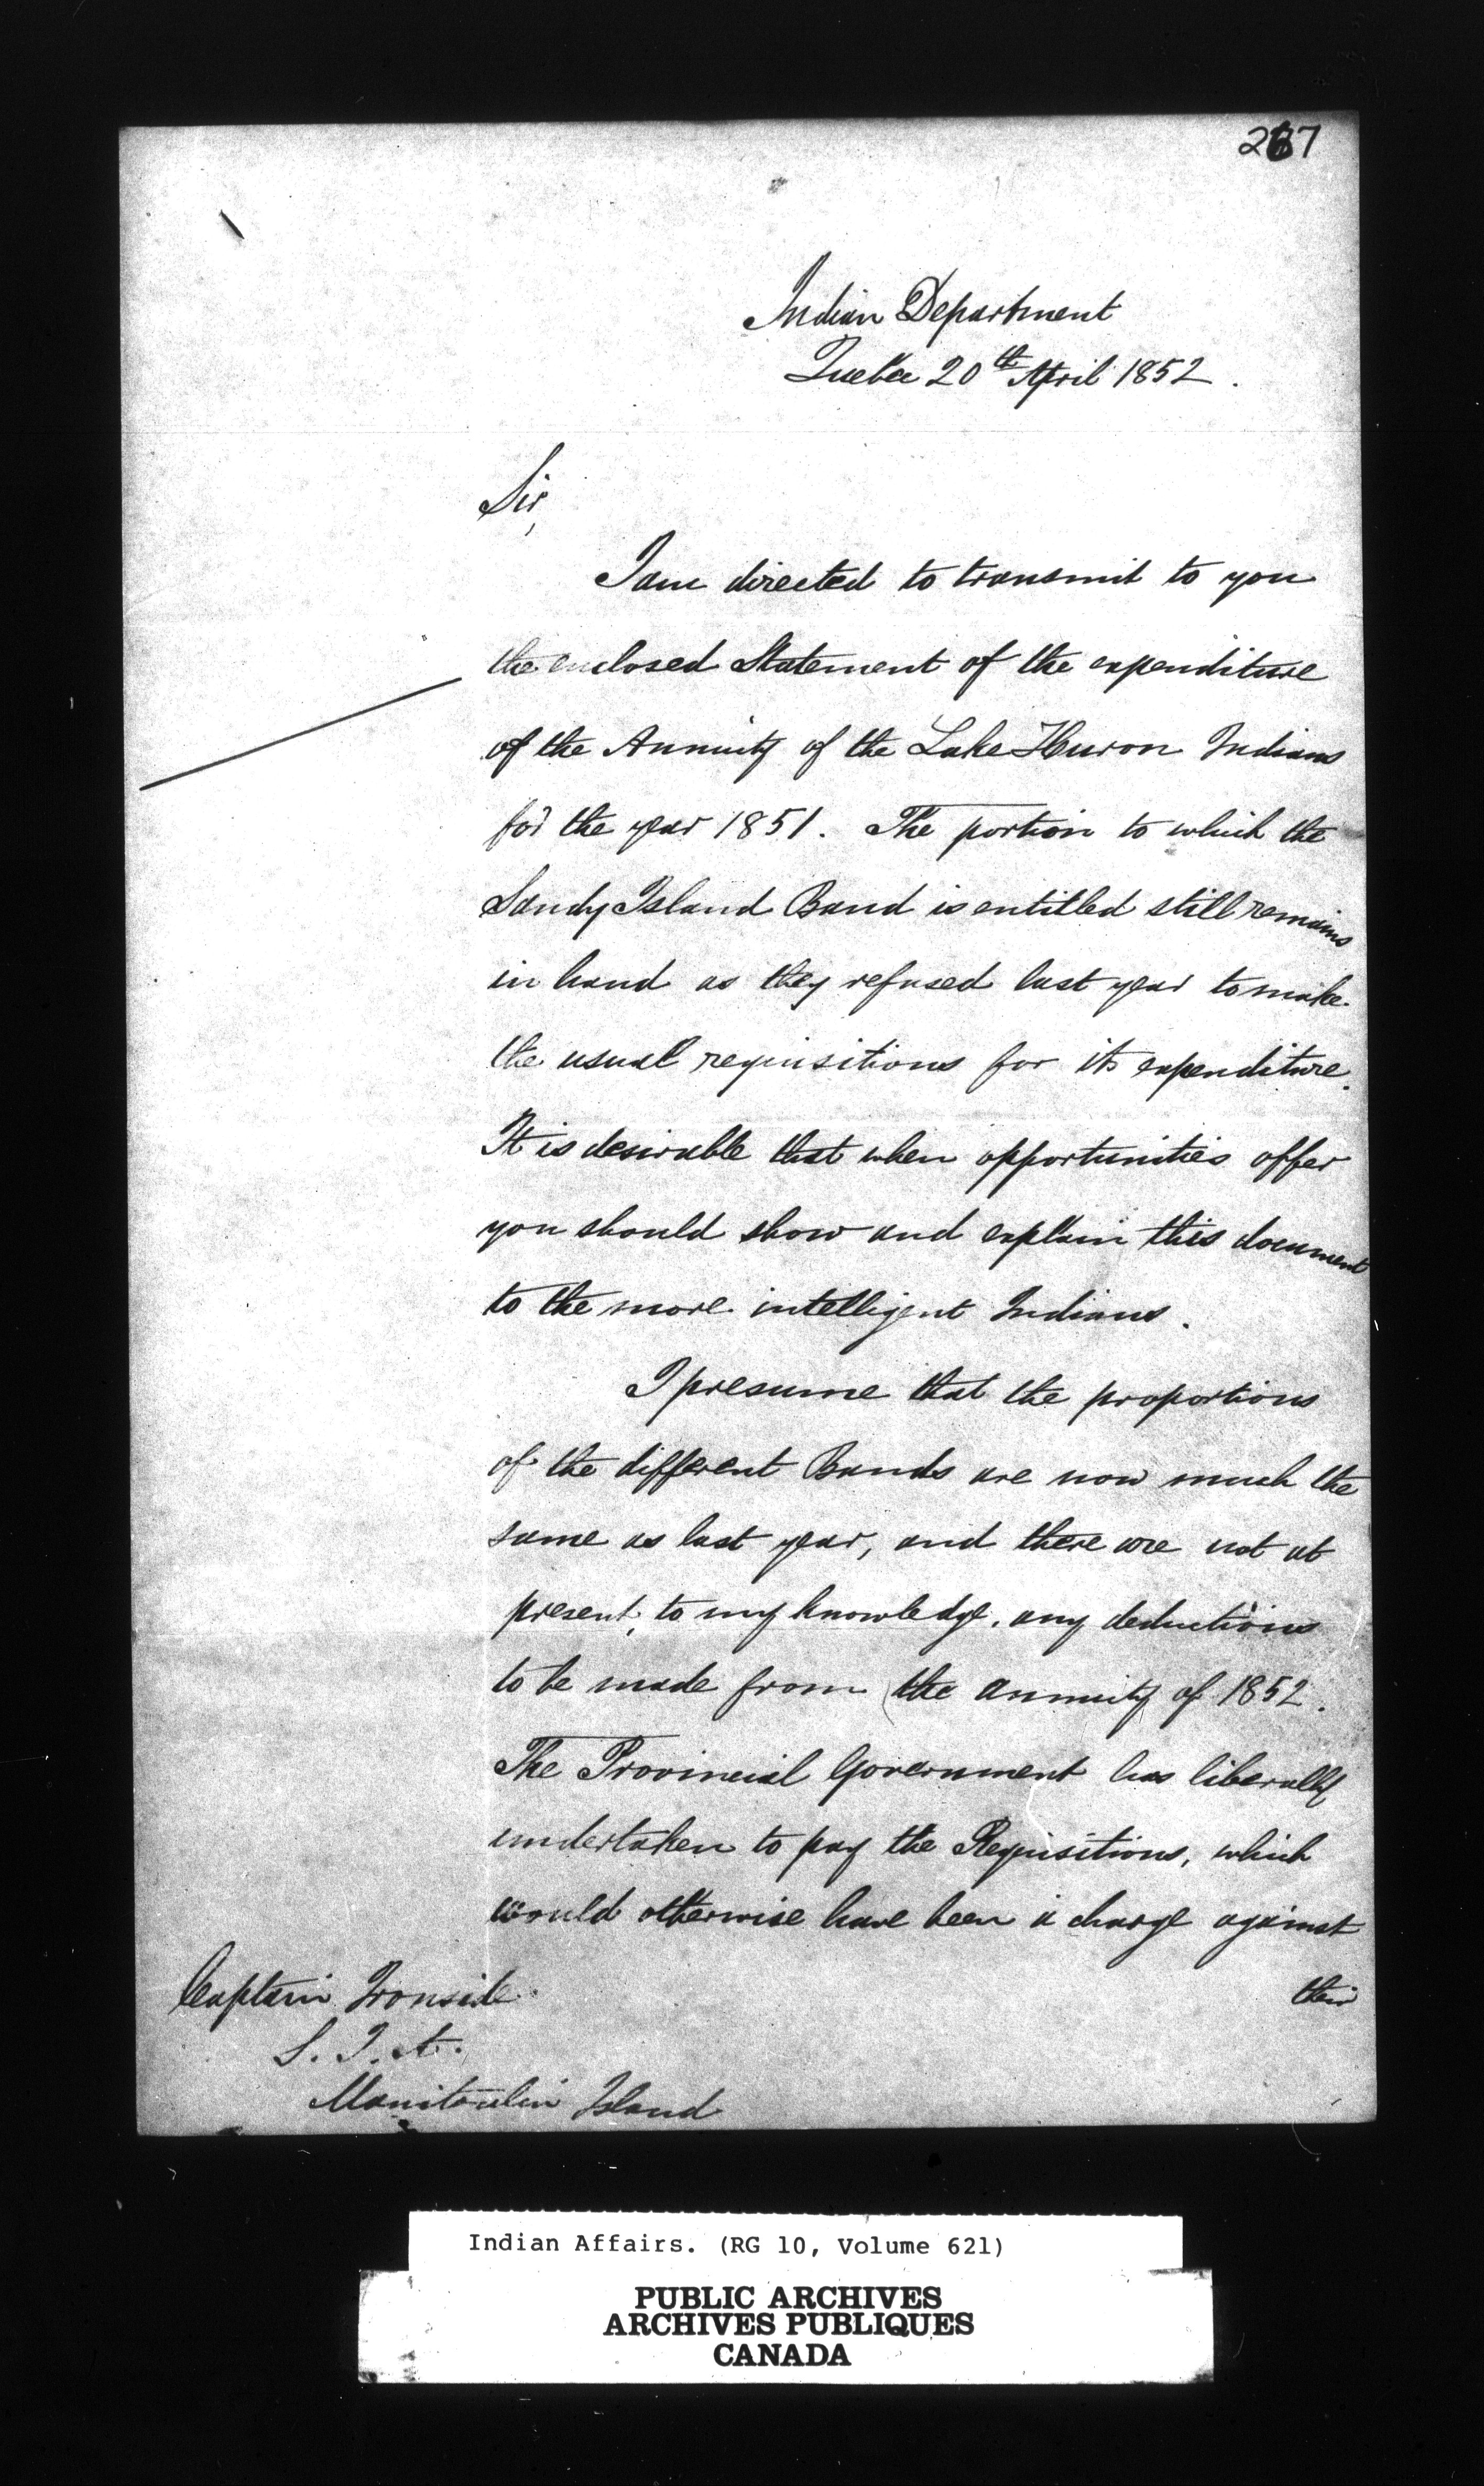 267
Indian Department
Quebec 20th April 1852.
Sir,
I am directed to transmit to you
the enclosed Statement of the expenditure
of the Annuity of the Lake Huron Indians
for the year 1851. The portion to which the
Sandy Island Band is entitled still remains
in hand as they refused last year to make
the usual requisitions for its expenditure.
It is desirable that when opportunities offer
you should show and explain this document
to the more intelligent Indians.
I presume that the proportions
of the different Bands are now much the
same as last year, and there are not at
present, to my knowledge, any deductions
to be made from the annuity of 1852.
The Provincial Government has liberally
undertaken to pay the Requisitions, which
would otherwise have been a charge against
their
Captain Ironside
S. I. A.
Manitoulin Island
Indian Affairs. (RG 10, Volume 621)
PUBLIC ARCHIVES
ARCHIVES PUBLIQUES
CANADA